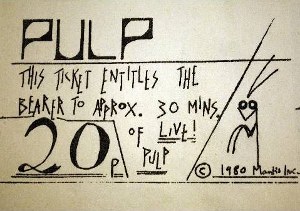 PULP
THIS TICKET ENTITLES THE
BEARER TO APPROX. 30 MINS.
20p OF LIVE!
PULP
© 1980 Mantis Inc.